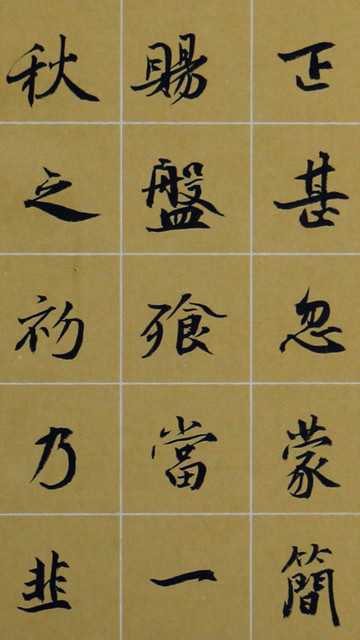 正甚忽蒙簡
賜盤飱當一
秋之初乃韭